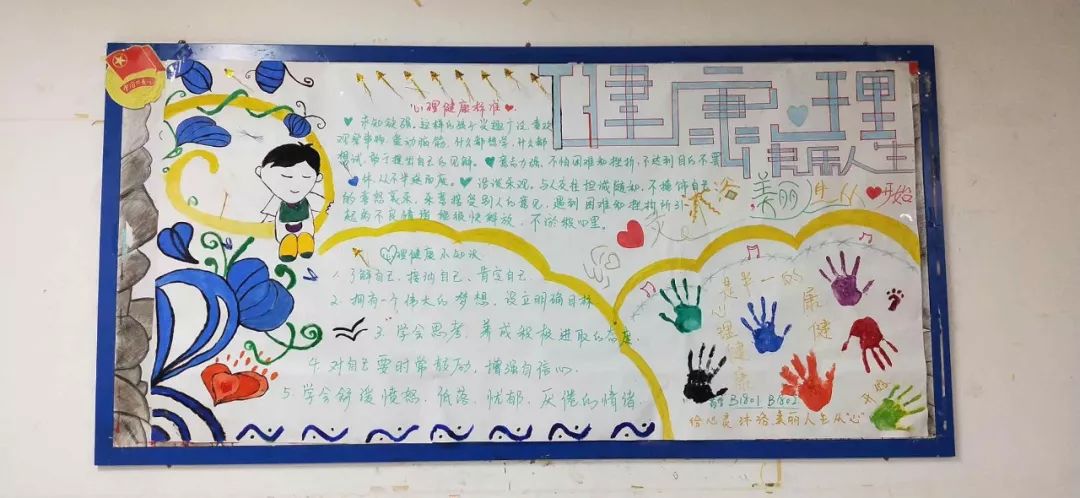 健康心理
美丽人生从♥开始
心理健康标准♥.
♥ 求知欲强。这样的孩子兴趣广泛,喜欢
观察事物,爱动脑筋,什么都想学,什么都
想试,敢于提出自己的见解。♥意志力强。不怕困难和挫折,不达到目的不罢
休,从不半途而废。♥ 活泼乐观。与人交往坦诚随和,不掩饰自己
的喜怒哀乐,乐意接受别人的意见,遇到困难和挫折所引
起的不良情绪能很快解放,不积压心里。
心理健康小知识
1.了解自己、接纳自己、肯定自己
2.拥有一个伟大的梦想,设立明确目标
3.学会思考,养成积极进取的态度.
4.对自己要时常鼓励,增强自信心.
5.学会舒缓愤怒、低落、忧郁、厌倦的情绪.
健康的一半是心理健康
B1801 B1802
给心灵沐浴 美丽人生从"心"开始